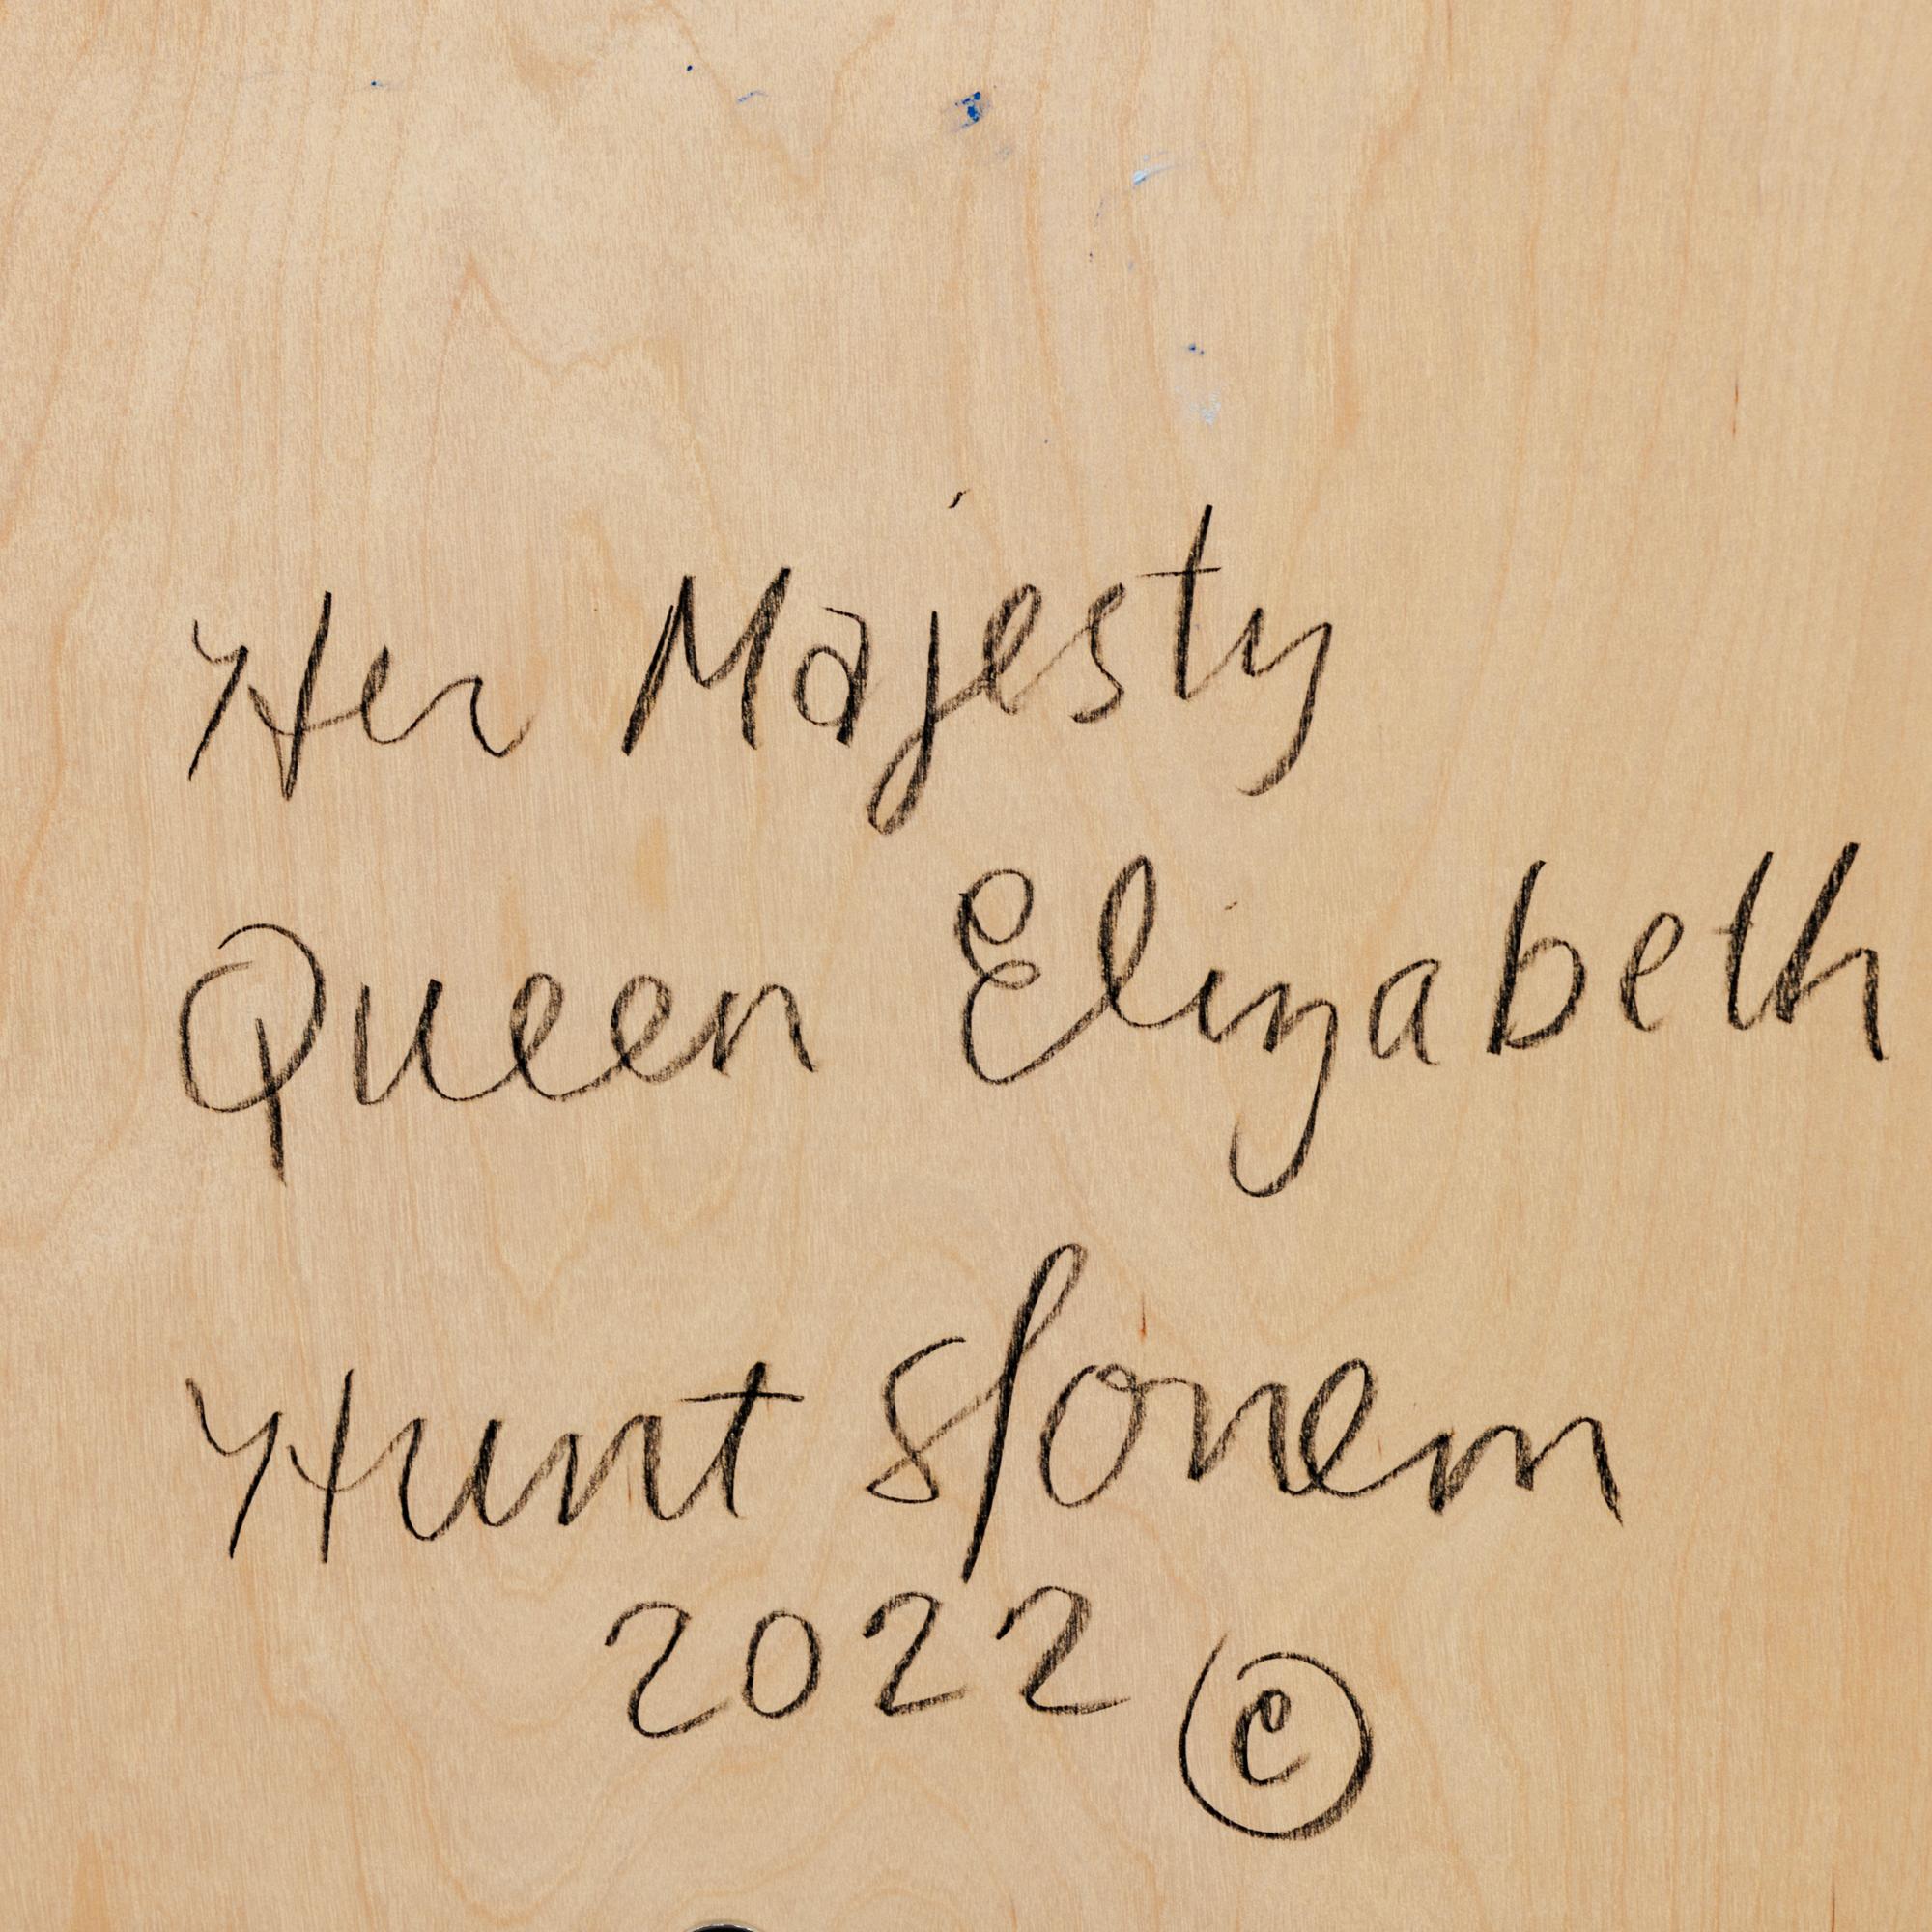 Her Majesty
Queen Elizabeth
Hunt Slonem
2022 ©